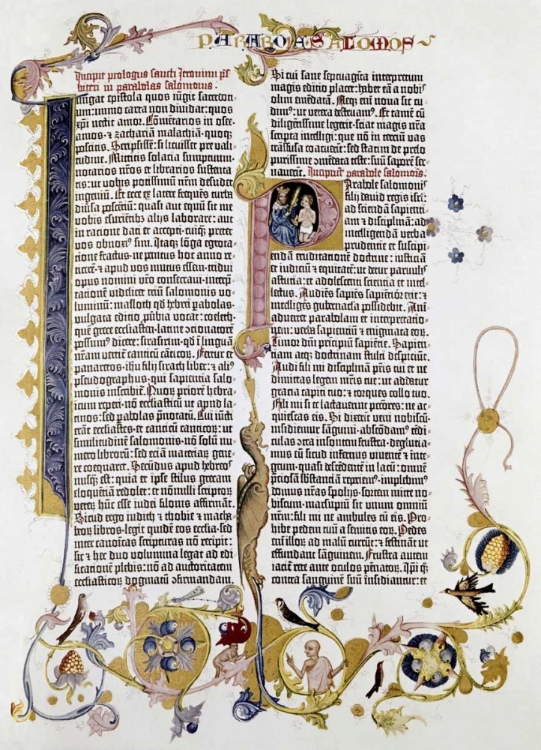 PARABOLA SALOMOIS
Incipit prologus sancti Jeronimi p̄s
biteri in parabolas salomonis
Iungat epistola quos iungit sacerdo-
ium: immo carta non dividat: quos
xp̄i nectit amor. Cōmentarios in osee-
amos· ⁊ zachariā malachiā· quoq;
poscitis. Scripsissē: si licuisset pre vali-
tudine. Mittitis solacia sumptuum·
notarios nr̄os et librarios sustenta-
tis: ut vobis potissimū nr̄m desudet
ingeniū. Et ecce ex latere frequēs turba
diversa poscentiū: quasi aut equū sit me
vobis esurientibz alijs laborare: aut
in ratione dati et accepti· cuiq̄ preter
vos obnoxiꝰ sim. Itaq; lōga egrota-
tione fractus· ne penitus hoc anno re-
ticerē· ⁊ apud vos mutus essem· tridui
opus nomini vr̄o consecravi· interp̄-
tationē videlicet triū salomonis vo-
luminū: masloth q̄d hebrei pabolas·
vulgata editio p̄ubia vocat: coeleth·
quē grece ecclesiasten· latine ꝯcionatorē
possumꝰ dicere: sirasirim· qd̄ ī linguā
nr̄am vertit̄ canticū cāticoꝝ. Fertur et
panaretos· ihu filij sirach liber: ⁊ aliꝰ
pseudographus· qui sapientia salo-
monis inscribit̄. Quoꝝ priorē hebra-
icum repperi· nō ecclesiasticū ut apud la-
tinos: sed pabolas p̄notatū. Cui iūcti
erāt ecclesiastes· et canticū canticoꝝ: ut
similitudinē salomonis· nō solū nu-
mero librorū: sed etiā materiaꝝ gene-
re coequaret. Secūdus apud hebreos
nusq̄ est: quia et ipse stilus grecam
eloquētiā redolet: et nōnulli scriptoꝝ
veteꝝ hūc esse iudei filonis affirmāt.
Sicud ergo iudith ⁊ thobie ⁊ macha-
beoꝝ libros· legit quidē eos ecclia· sed
inter canonicas scripturas nō recipit:
sic ⁊ hec duo volumina legat ad edi-
ficationē plebis: nō ad auctoritatem
ecclesiasticoꝝ dogmatū ꝯfirmandam.
Si cui sane septuaginta interpretum
magis editio placet: habet eā a nobis
olim emēdatā. Neq; enī nova sic cu-
dimꝰ: ut vetera destruamꝰ. Et tamē cū
diligētissime legerit· sciat magis nr̄a
scripta intelligi: que nō in terciū vas
trāsfusa coacuerīt: sed statim de prelo
purissime ꝯmēdata teste: suū saporē ser-
vaverīt. Incipiūt parabole salomonis
Parabole salomonis
filij david regis isrl̄:
ad sciendā sapienti-
am ⁊ disciplinā: ad
intelligendā verba
prudentie et suscipi-
endā eruditationē doctrine: iusticiā
et iudiciū ⁊ equitatē: ut detur parvulis
astutia: et adolescenti scientia et intel-
lectus. Audiēs sapiēs sapientior erit: ⁊
intelligēs gubernacla possidebit. Ani-
advertet parabolam et interpretatio-
nem: verba sapientiū ⁊ enigmata eoꝝ.
Timor dn̄i principiū sapiētie. Sapien-
tiam atq; doctrinam stulti despiciūt.
Audi fili mi disciplinā pr̄is tui et ne
dimittas legem mr̄is tue: ut addatur
gracia capiti tuo: ⁊ torques collo tuo.
Fili mi si te lactaverint peccatores: ne ac-
quiescas eis. Si dixerīt veni nobiscū·
insidiemur sāguini· abscōdamꝰ tēdi-
culas ꝯtra insontem frustra· deglutia-
mus eū sicud infernus viventē ⁊ inte-
grum· quasi descēdentē in lacū: omnē
preciosā substātiā reperiemꝰ· implebimꝰ
domus nr̄as spolijs· sortem mitte no-
biscum· marsupiū sit unum omnium
nr̄m: fili mi ne ambules cū eis. Pro-
hibe pedem tuū a semitis eoꝝ. Pedes
enī illoꝝ ad malū currūt: ⁊ festināt ut
effundant sāguinem. Frustra autem
iacit̄ rete ante oculos pēnatoꝝ. Ipi q̄;
contra sanguinē suū insidiantur: et